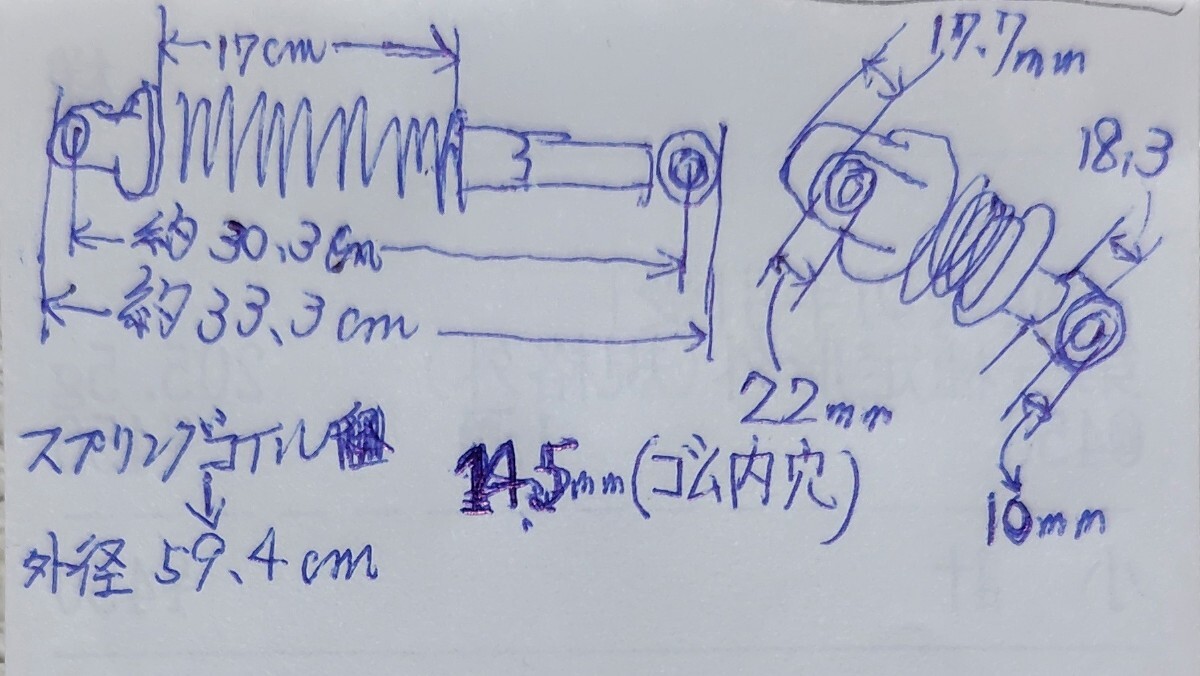 17cm
約30.3cm
約33.3cm
17.7mm
18,3
22mm
10mm
スプリングコイル
外径 59.4cm
14.5mm(ゴム内穴)
205.5g